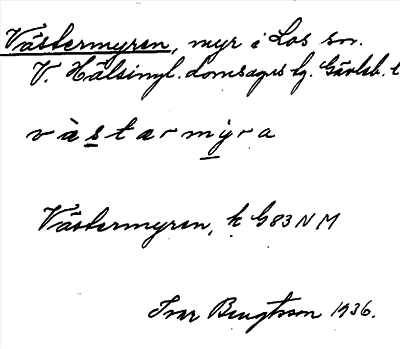 Västermyren, myr i Los sn.
V. Hälsingl. domsagas tg. Gävleb. l
västarmyra
Västermyren, k G83NM
Ivar Bengtsson 1936.